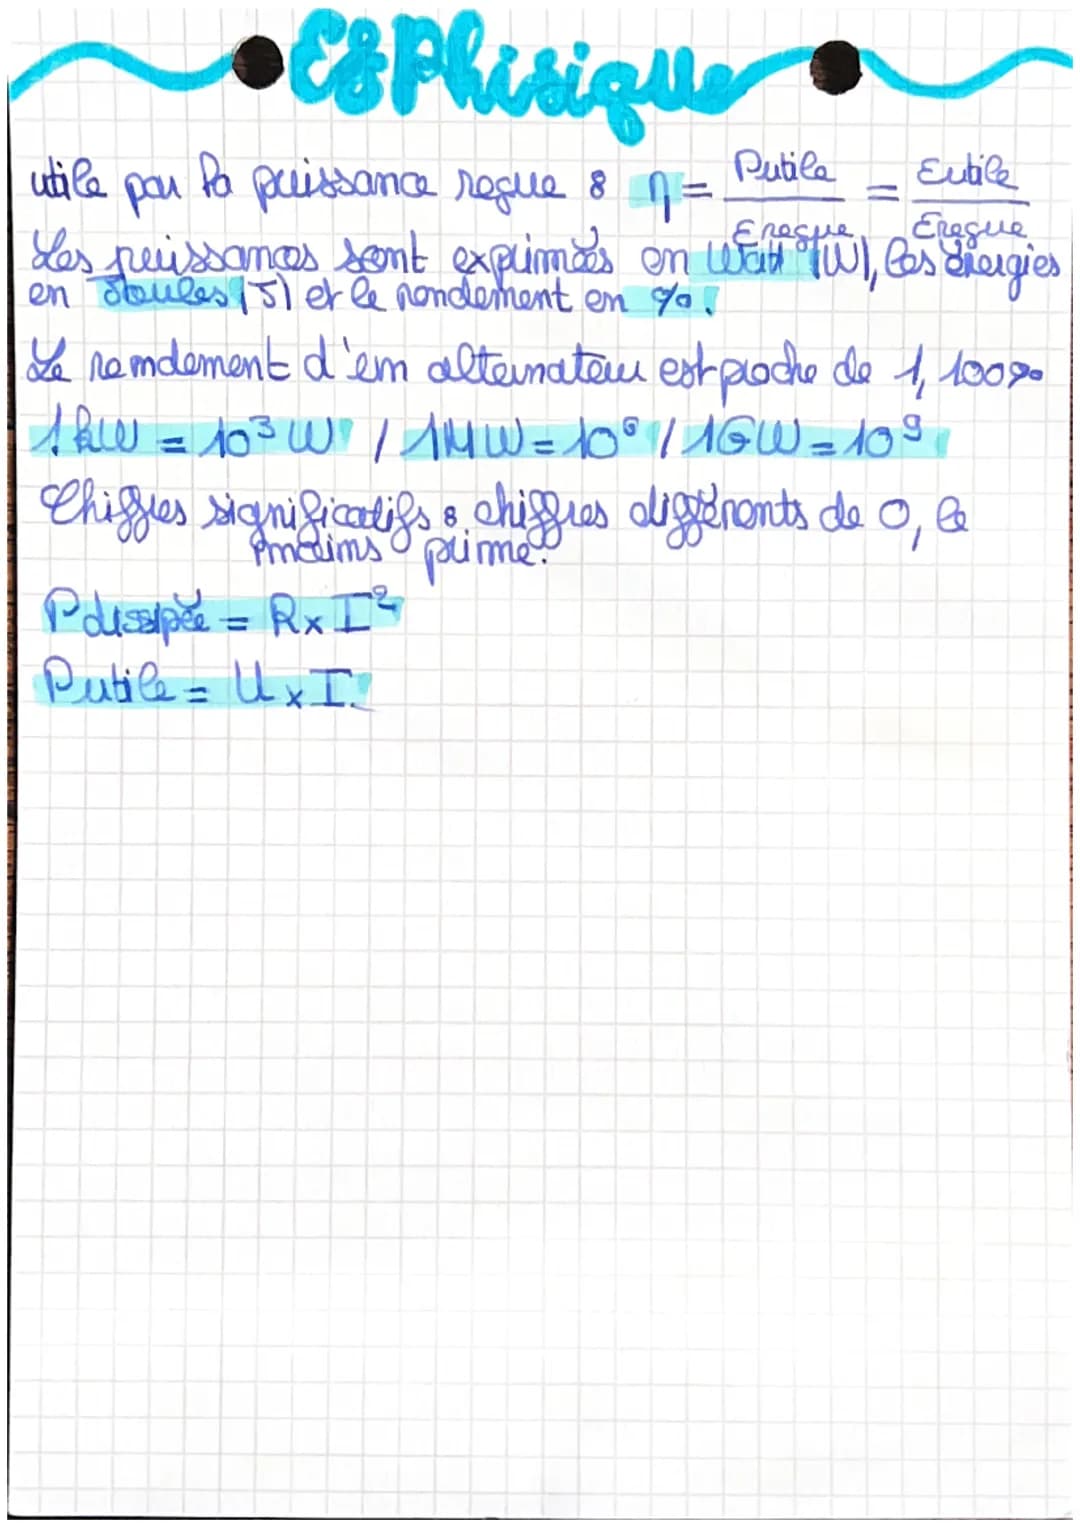 ES Phisique
utile par la puissance reçue : η = Putile / Ereçue = Eutile / Ereçue
Les puissances sont exprimées en Watt (W), les énergies
en Joules (J) et le rendement en %.
Le rendement d'em alternateur est proche de 1, 100%
1kW = 10³ W / 1MW = 10⁶ / 1GW = 10⁹
Chiffres significatifs : chiffres différents de 0, le
moins prime.
Pdissipée = R x I²
Putile = U x I.